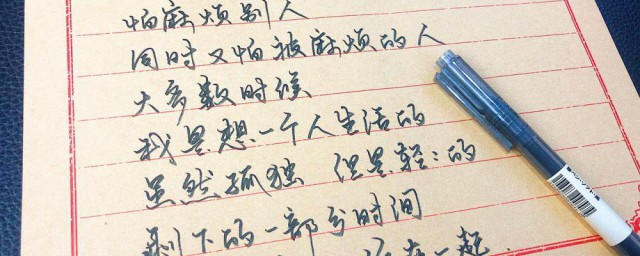 怕麻烦别人
同时又怕被麻烦的人
大多数时候
我是想一个人生活的
虽然孤独 但是轻:的
剩下的一部分时间
在一起